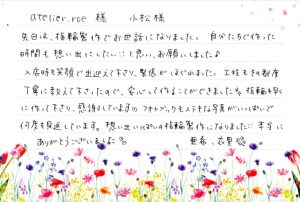 atelier.roe 様　小松様
先日は、指輪製作でお世話になりました。自分たちで作った
時間も想い出にしたい…と思い、お願いしました♪
入店時も笑顔で出迎えて下さり、緊張がほぐれました。工程もその都度
丁寧に教えて下さったので、安心して作ることができました。指輪を早く
に作って下さり、感謝しています。フォトブックもステキな写真がいっぱいで
何度も見返しています。想い出いっぱいの指輪製作になりました。本当に
ありがとうございました